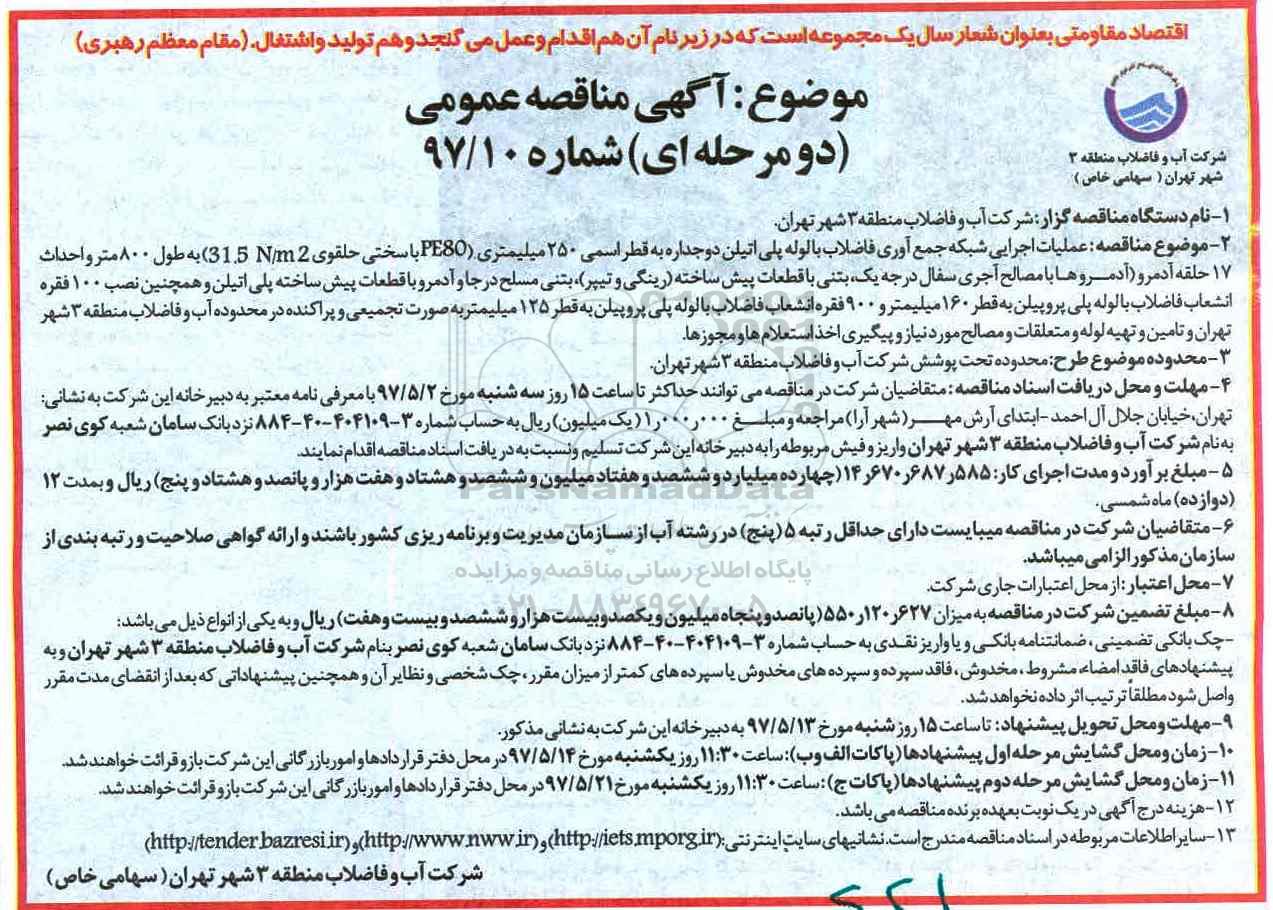 اقتصاد مقاومتی بعنوان شعار سال یک مجموعه است که در زیر نام آن هم اقدام و عمل می گنجد و هم تولید و اشتغال. (مقام معظم رهبری)
موضوع: آگهی مناقصه عمومی
(دو مرحله ای) شماره ۹۷/۱۰
شرکت آب و فاضلاب منطقه ۳
شهر تهران ( سهامی خاص )
۱-نام دستگاه مناقصه گزار: شرکت آب و فاضلاب منطقه ۳ شهر تهران.
۲-موضوع مناقصه: عملیات اجرایی شبکه جمع آوری فاضلاب با لوله پلی اتیلن دوجداره به قطر اسمی ۲۵۰ میلیمتری (PE80 با سختی حلقوی 31.5 N/m2) به طول ۸۰۰ متر و احداث
۱۷ حلقه آدمرو (آدمروها با مصالح آجری سفال درجه یک، بتنی با قطعات پیش ساخته (رینگی و تیپر)، بتنی مسلح درجا و آدمرو با قطعات پیش ساخته پلی اتیلن و همچنین نصب ۱۰۰ فقره
انشعاب فاضلاب با لوله پلی پروپیلن به قطر ۱۶۰ میلیمتر و ۹۰۰ فقره انشعاب فاضلاب با لوله پلی پروپیلن به قطر ۱۲۵ میلیمتر به صورت تجمیعی و پراکنده در محدوده آب و فاضلاب منطقه ۳ شهر
تهران و تامین و تهیه لوله و متعلقات و مصالح مورد نیاز و پیگیری اخذ استعلام ها و مجوزها.
۳-محدوده موضوع طرح: محدوده تحت پوشش شرکت آب و فاضلاب منطقه ۳ شهر تهران.
۴- مهلت و محل دریافت اسناد مناقصه: متقاضیان شرکت در مناقصه می توانند حداکثر تا ساعت ۱۵ روز سه شنبه مورخ ۹۷/۵/۲ با معرفی نامه معتبر به دبیرخانه این شرکت به نشانی:
تهران، خیابان جلال آل احمد -ابتدای آرش مهر (شهرآرا) مراجعه و مبلغ ۱٫۰۰۰٫۰۰۰ (یک میلیون) ریال به حساب شماره ۳-۴۰۴۱۰۹-۴۰-۸۸۴ نزد بانک سامان شعبه کوی نصر
به نام شرکت آب و فاضلاب منطقه ۳ شهر تهران واریز و فیش مربوطه را به دبیرخانه این شرکت تسلیم ونسبت به دریافت اسناد مناقصه اقدام نمایند.
۵- مبلغ برآورد و مدت اجرای کار: ۱۴٫۶۷۰٫۶۸۷٫۵۸۵ (چهارده میلیارد و ششصد و هفتاد میلیون و ششصد و هشتاد و هفت هزار و پانصد و هشتاد و پنج) ریال و بمدت ۱۲
(دوازده) ماه شمسی.
۶- متقاضیان شرکت در مناقصه میبایست دارای حداقل رتبه ۵ (پنج) در رشته آب از سازمان مدیریت و برنامه ریزی کشور باشند و ارائه گواهی صلاحیت و رتبه بندی از
سازمان مذکور الزامی میباشد.
۷- محل اعتبار: از محل اعتبارات جاری شرکت.
۸- مبلغ تضمین شرکت در مناقصه به میزان ۵۵۰٫۱۲۰٫۶۲۷ (پانصد و پنجاه میلیون و یکصد و بیست هزار و ششصد و بیست و هفت) ریال و به یکی از انواع ذیل می باشد:
-چک بانکی تضمینی، ضمانتنامه بانکی و یا واریز نقدی به حساب شماره ۳-۴۰۴۱۰۹-۴۰-۸۸۴ نزد بانک سامان شعبه کوی نصر بنام شرکت آب و فاضلاب منطقه ۳ شهر تهران و به
پیشنهادهای فاقد امضاء، مشروط، مخدوش، فاقد سپرده و سپرده های مخدوش یا سپرده های کمتر از میزان مقرر، چک شخصی و نظایر آن و همچنین پیشنهاداتی که بعد از انقضای مدت مقرر
واصل شود مطلقاً ترتیب اثر داده نخواهد شد.
۹- مهلت و محل تحویل پیشنهاد: تا ساعت ۱۵ روز شنبه مورخ ۹۷/۵/۱۳ به دبیرخانه این شرکت به نشانی مذکور.
۱۰- زمان و محل گشایش مرحله اول پیشنهادها (پاکات الف و ب): ساعت ۱۱:۳۰ روز یکشنبه مورخ ۹۷/۵/۱۴ در محل دفتر قراردادها و امور بازرگانی این شرکت باز و قرائت خواهند شد.
۱۱- زمان و محل گشایش مرحله دوم پیشنهادها (پاکات ج): ساعت ۱۱:۳۰ روز یکشنبه مورخ ۹۷/۵/۲۱ در محل دفتر قراردادها و امور بازرگانی این شرکت باز و قرائت خواهند شد.
۱۲- هزینه درج آگهی در یک نوبت بعهده برنده مناقصه می باشد.
۱۳- سایر اطلاعات مربوطه در اسناد مناقصه مندرج است. نشانیهای سایت اینترنتی: (http://iets.mporg.ir) و (http://www.nww.ir) و (http://tender.bazresi.ir)
شرکت آب و فاضلاب منطقه ۳ شهر تهران ( سهامی خاص )
ParsNamadData
پایگاه اطلاع رسانی مناقصه و مزایده
۰۲۱-۸۸۳۴۹۶۷۰-۵